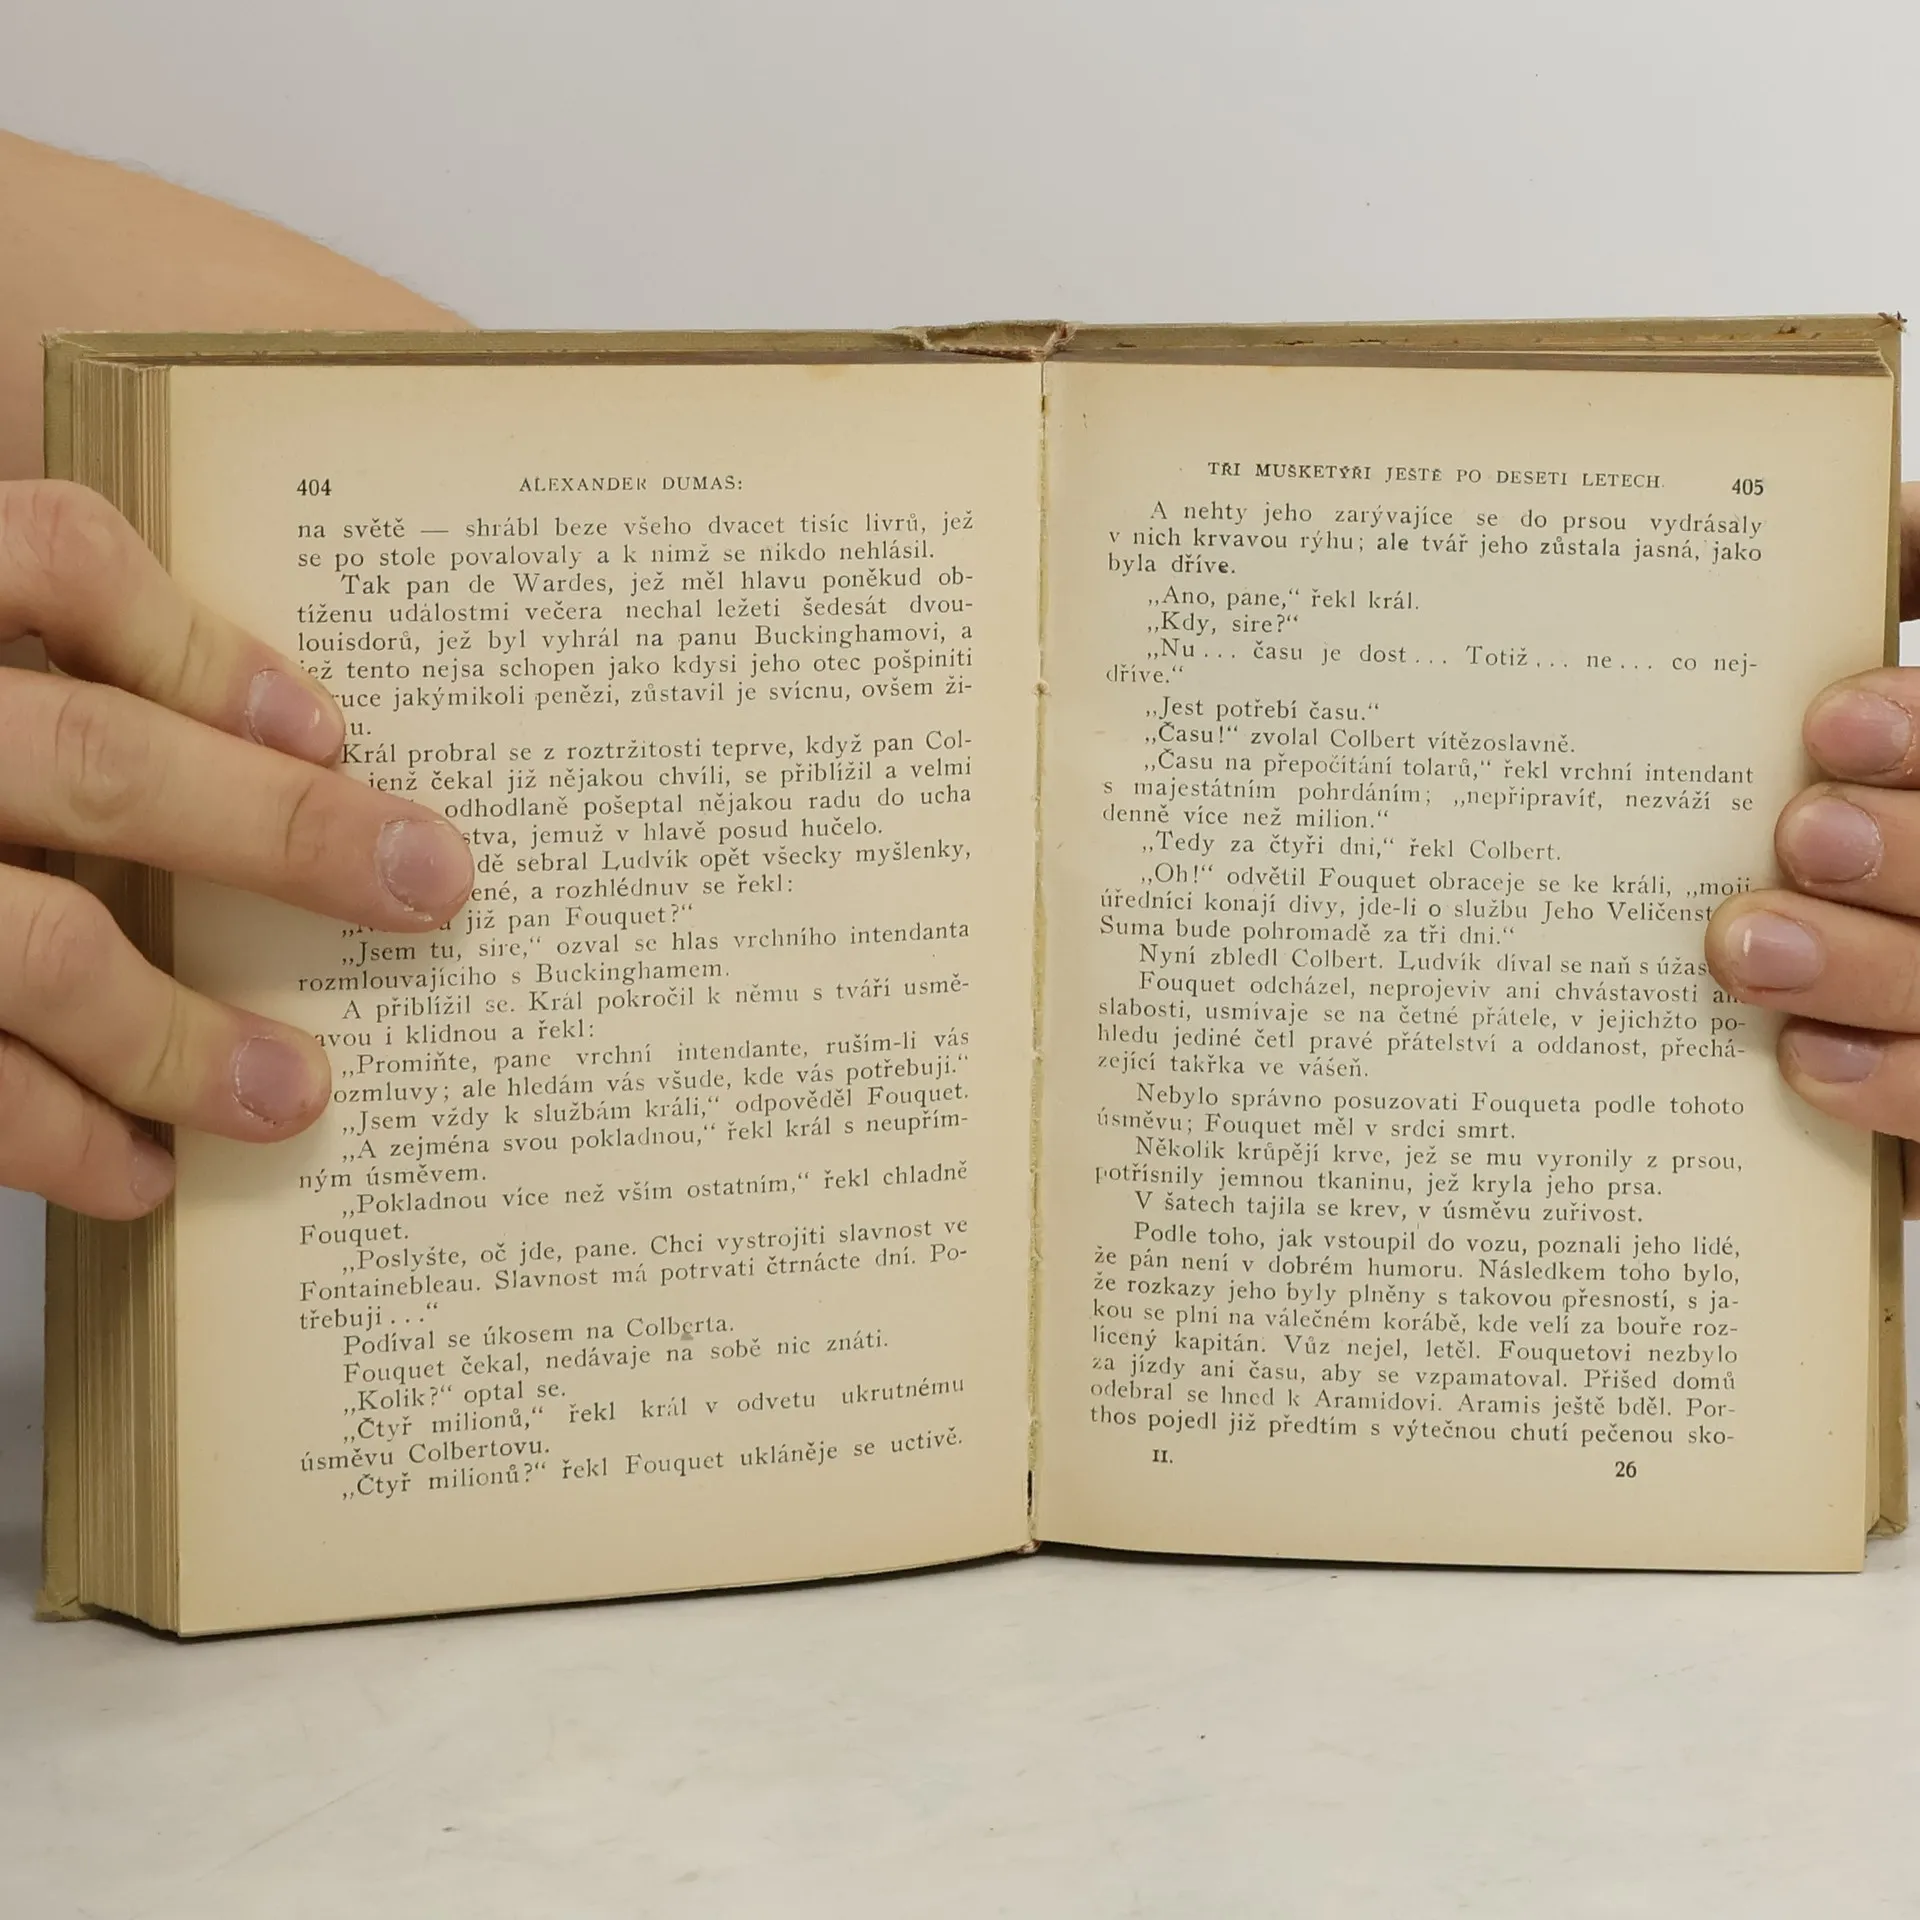 404
ALEXANDER DUMAS:
na světě — shrábl beze všeho dvacet tisíc livrů, jež
se po stole povalovaly a k nimž se nikdo nehlásil.
Tak pan de Wardes, jež měl hlavu poněkud ob-
tíženu událostmi večera nechal ležeti šedesát dvou-
louisdorů, jež byl vyhrál na panu Buckinghamovi, a
tento nejsa schopen jako kdysi jeho otec pošpiniti
jakýmikoli penězi, zůstavil je svícnu, ovšem ži-
Král probral se z roztržitosti teprve, když pan Col-
jenž čekal již nějakou chvíli, se přiblížil a velmi
odhodlaně pošeptal nějakou radu do ucha
jemuž v hlavě posud hučelo.
sebral Ludvík opět všecky myšlenky,
a rozhlédnuv se řekl:
již pan Fouquet?“
„Jsem tu, sire,“ ozval se hlas vrchního intendanta
rozmlouvajícího s Buckinghamem.
A přiblížil se. Král pokročil k němu s tváří usmě-
i klidnou a řekl:
„Promiňte, pane vrchní intendante, ruším-li vás
ale hledám vás všude, kde vás potřebuji.“
„Jsem vždy k službám králi,“ odpověděl Fouquet.
„A zejména svou pokladnou,“ řekl král s neupřím-
ným úsměvem.
„Pokladnou více než vším ostatním,“ řekl chladně
Fouquet.
„Poslyšte, oč jde, pane. Chci vystrojiti slavnost ve
Fontainebleau. Slavnost má potrvati čtrnácte dní. Po-
třebuji . . .“
Podíval se úkosem na Colberta.
Fouquet čekal, nedávaje na sobě nic znáti.
„Kolik?“ optal se.
„Čtyř milionů,“ řekl král v odvetu ukrutnému
úsměvu Colbertovu.
„Čtyř milionů?“ řekl Fouquet ukláněje se uctivě.
TŘI MUŠKETÝŘI JEŠTĚ PO DESETI LETECH.
405
A nehty jeho zarývajíce se do prsou vydrásaly
v nich krvavou rýhu; ale tvář jeho zůstala jasná, jako
byla dříve.
„Ano, pane,“ řekl král.
„Kdy, sire?“
„Nu . . . času je dost . . . Totiž . . . ne . . . co nej-
dříve.“
„Jest potřebí času.“
„Času!“ zvolal Colbert vítězoslavně.
„Času na přepočítání tolarů,“ řekl vrchní intendant
s majestátním pohrdáním; „nepřipravíť, nezváží se
denně více než milion.“
„Tedy za čtyři dni,“ řekl Colbert.
„Oh!“ odvětil Fouquet obraceje se ke králi, „moji
úředníci konají divy, jde-li o službu Jeho
Suma bude pohromadě za tři dni.“
Nyní zbledl Colbert. Ludvík díval se naň s
Fouquet odcházel, neprojeviv ani chvástavosti
slabosti, usmívaje se na četné přátele, v jejichžto po-
hledu jediné četl pravé přátelství a oddanost, přechá-
zející takřka ve vášeň.
Nebylo správno posuzovati Fouqueta podle tohoto
úsměvu; Fouquet měl v srdci smrt.
Několik krůpějí krve, jež se mu vyronily z prsou,
potřísnily jemnou tkaninu, jež kryla jeho prsa.
V šatech tajila se krev, v úsměvu zuřivost.
Podle toho, jak vstoupil do vozu, poznali jeho lidé,
že pán není v dobrém humoru. Následkem toho bylo,
že rozkazy jeho byly plněny s takovou přesností, s ja-
kou se plní na válečném korábě, kde velí za bouře roz-
lícený kapitán. Vůz nejel, letěl. Fouquetovi nezbylo
za jízdy ani času, aby se vzpamatoval. Přišed domů
odebral se hned k Aramidovi. Aramis ještě bděl. Por-
thos pojedl již předtím s výtečnou chutí pečenou sko-
II.
26